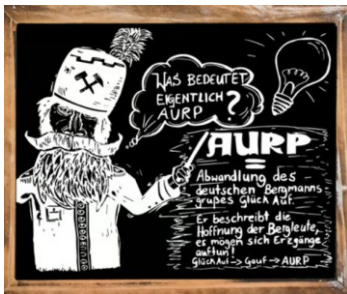 WAS BEDEUTET
EIGENTLICH
AURP ?
AURP
=
Abwandlung des
deutschen Bergmanns-
grußes Glück Auf.
Er beschreibt die
Hoffnung der Bergleute,
es mögen sich Erzgänge
auftun!
Glück Auf -> Gauf -> AURP